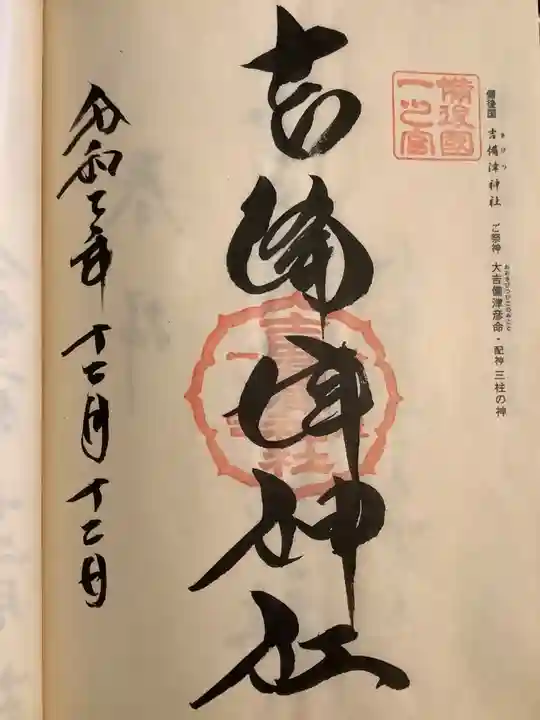 備後国 吉備津神社 ご祭神 大吉備津彦命・配神 三柱の神
きびつ
おおきびつひこのみこと
備後國
一之宮
吉備津神社
令和二年 十二月 十二日